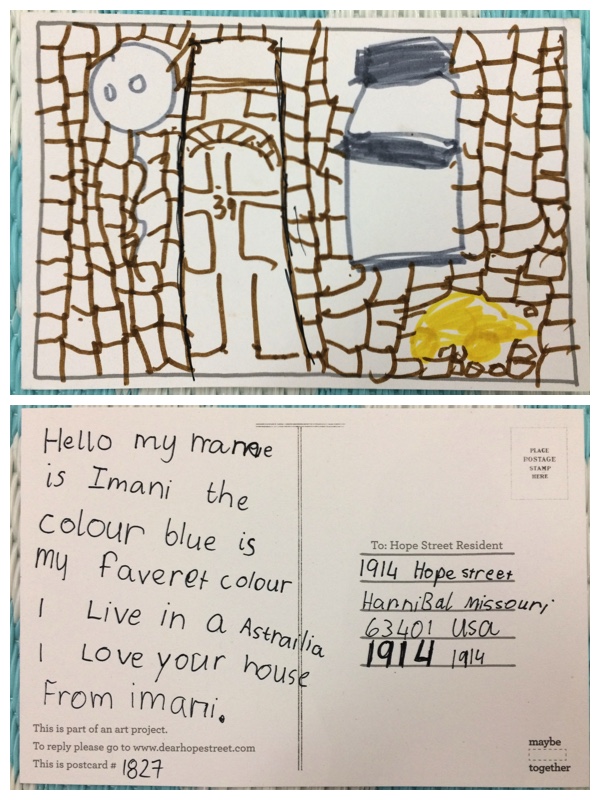 39
Hello my name
is Imani the
colour blue is
my faveret colour
I Live in a Astrailia
I Love your house
From imani.
This is part of an art project.
To reply please go to www.dearhopestreet.com
This is postcard # 1827
PLACE
POSTAGE
STAMP
HERE
To: Hope Street Resident
1914 Hope street
HanniBal missouri
63401 USA
1914 1914
maybe
together